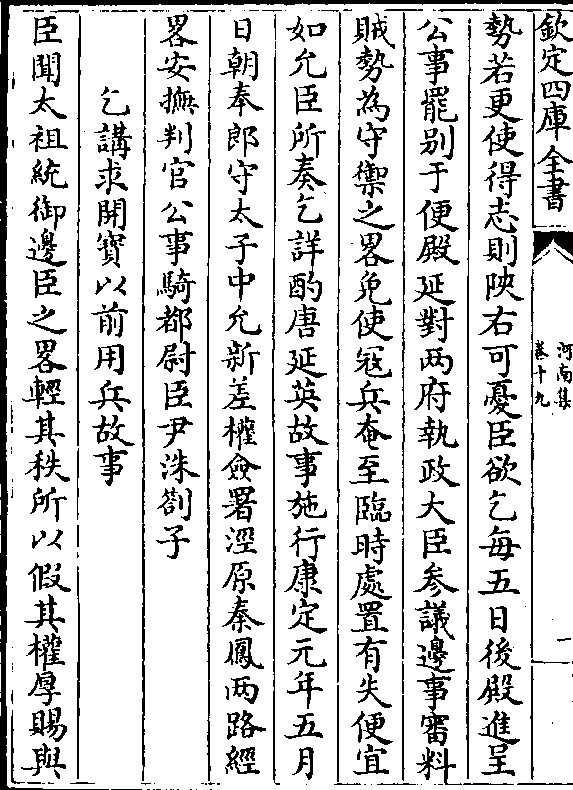 欽定四庫全書
河南集
卷十九
一
勢若更使得志則陜右可憂臣欲乞每五日後殿進呈
公事罷别于便殿延對兩府執政大臣參議邊事審料
賊勢為守禦之畧免使冦兵奄至臨時處置有失便宜
如允臣所奏乞詳酌唐延英故事施行康定元年五月
日朝奉郎守太子中允新差權僉署涇原秦鳳兩路經
畧安撫判官公事騎都尉臣尹洙劄子
乞講求開寶以前用兵故事
臣聞太祖統御邊臣之畧輕其秩所以假其權厚賜與